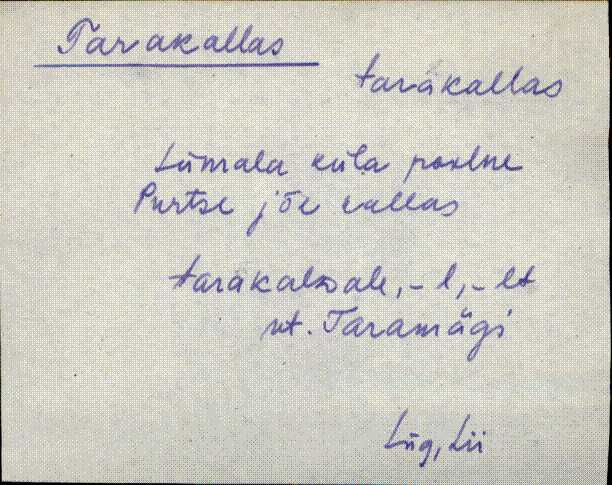 Tarakallas
tarakallas
Liimala küla poolne
Purtse jõe kallas
tarakalsale, -l, -lt
vt. Taramägi
Lüg, Lii